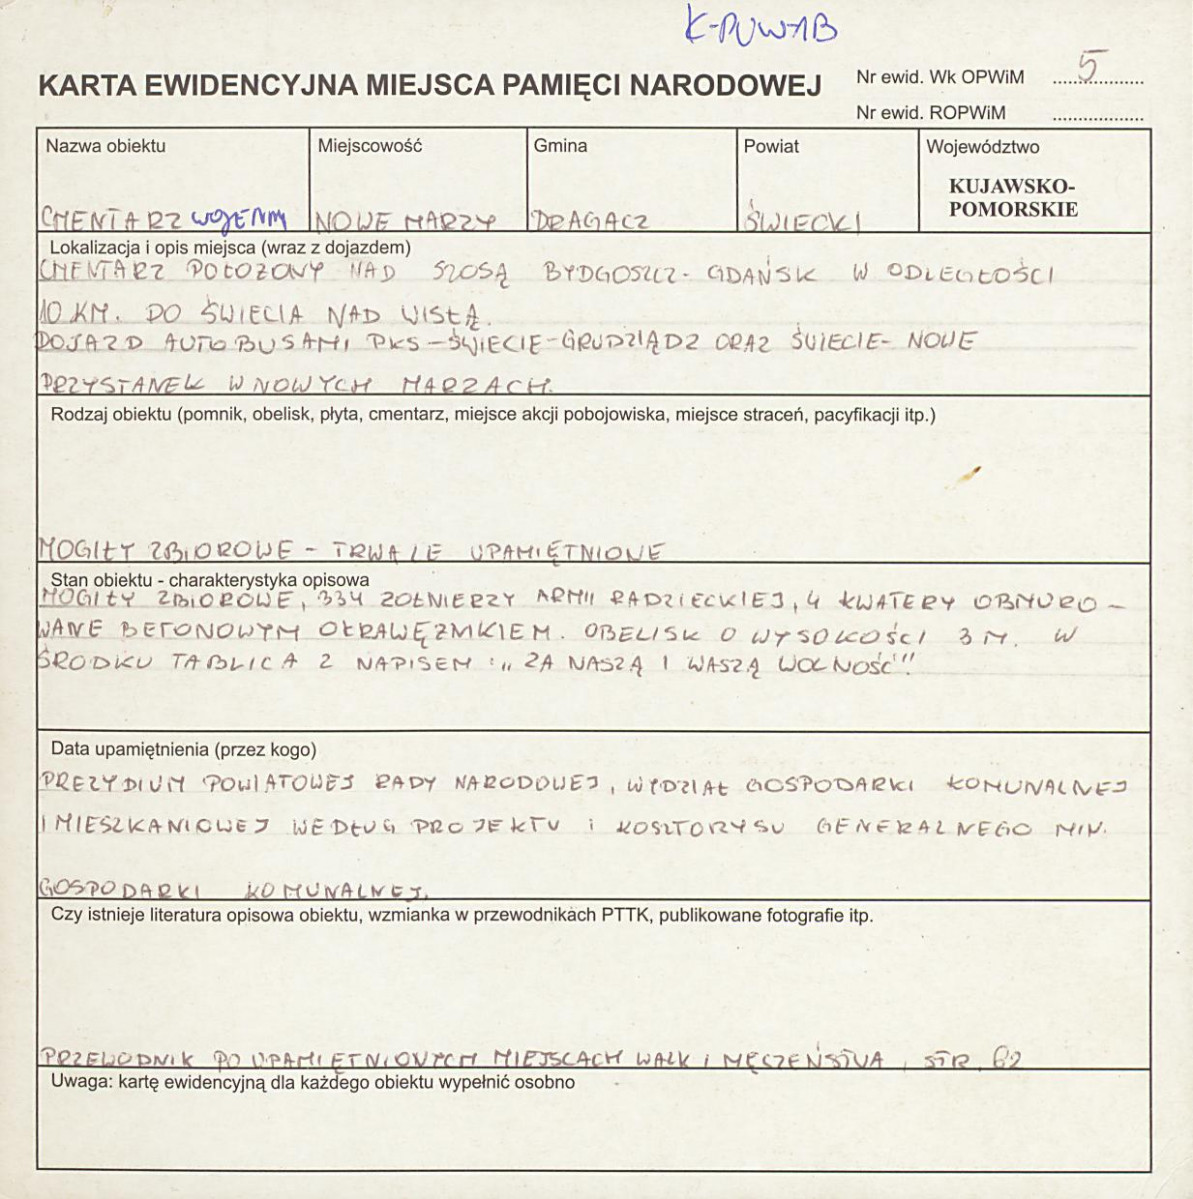 K-PUW-1B
KARTA EWIDENCYJNA MIEJSCA PAMIĘCI NARODOWEJ
Nr ewid. Wk OPWiM 5
Nr ewid. ROPWiM ....................
Nazwa obiektu
CMENTARZ WOJENNY
Miejscowość
NOWE MARZY
Gmina
DRAGACZ
Powiat
ŚWIECKI
Województwo
KUJAWSKO-
POMORSKIE
Lokalizacja i opis miejsca (wraz z dojazdem)
CMENTARZ POŁOŻONY NAD SZOSĄ BYDGOSZCZ-GDAŃSK W ODLEGŁOŚCI
10 KM. DO ŚWIECIA NAD WISŁĄ.
DOJAZD AUTOBUSAMI PKS-ŚWIECIE-GRUDZIĄDZ ORAZ ŚWIECIE-NOWE
PRZYSTANEK W NOWYCH MARZACH.
Rodzaj obiektu (pomnik, obelisk, płyta, cmentarz, miejsce akcji pobojowiska, miejsce straceń, pacyfikacji itp.)
MOGIŁY ZBIOROWE - TRWALE UPAMIĘTNIONE
Stan obiektu - charakterystyka opisowa
MOGIŁY ZBIOROWE, 334 ŻOŁNIERZY ARMII RADZIECKIEJ, 4 KWATERY OBMURO-
WANE BETONOWYM OKRAWĘŻNIKIEM. OBELISK O WYSOKOŚCI 3 M. W
ŚRODKU TABLICA Z NAPISEM: „ZA NASZĄ I WASZĄ WOLNOŚĆ".
Data upamiętnienia (przez kogo)
PREZYDIUM POWIATOWEJ RADY NARODOWEJ, WYDZIAŁ GOSPODARKI KOMUNALNEJ
I MIESZKANIOWEJ WEDŁUG PROJEKTU I KOSZTORYSU GENERALNEGO MIN.
GOSPODARKI KOMUNALNEJ.
Czy istnieje literatura opisowa obiektu, wzmianka w przewodnikach PTTK, publikowane fotografie itp.
PRZEWODNIK PO UPAMIĘTNIONYCH MIEJSCACH WALK I MĘCZEŃSTWA, STR. 62
Uwaga: kartę ewidencyjną dla każdego obiektu wypełnić osobno